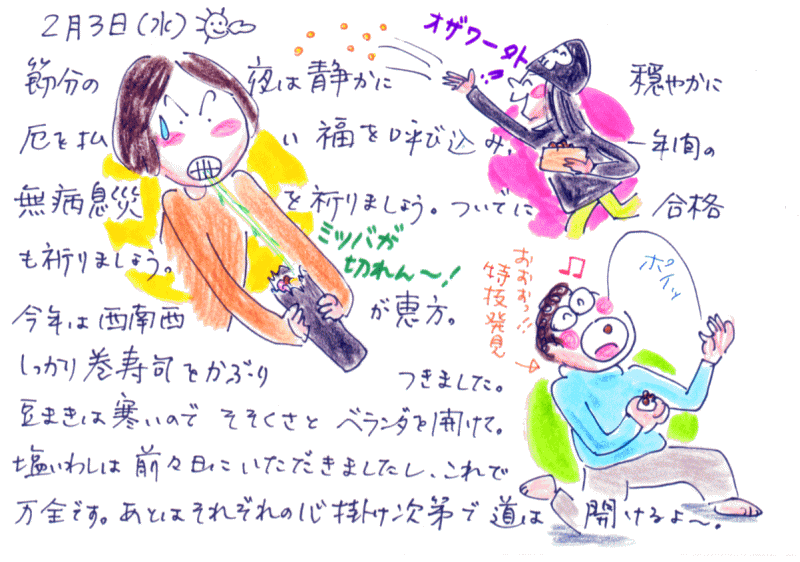 2月3日(水)
節分の夜は静かに穏やかに
厄を払い福を呼び込み、一年間の
無病息災を祈りましょう。ついでに合格
も祈りましょう。
今年は西南西が恵方。
しっかり巻寿司をかぶりつきました。
豆まきは寒いのでそそくさとベランダを開けて。
塩いわしは前々日にいただきましたし、これで
万全です。あとはそれぞれの心掛け次第で道は開けるよ〜。
オザワータト
ミツバが
切れん〜!
おおおっ!!
特技発見
ホイッ